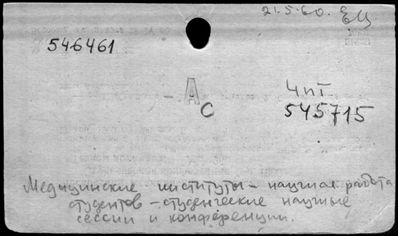 21.5.60. ЕЦ
546461
- А с
4 пI
545715
Медицинские институты - научная работа
студентов - студенческие научные
сессии и конференции.